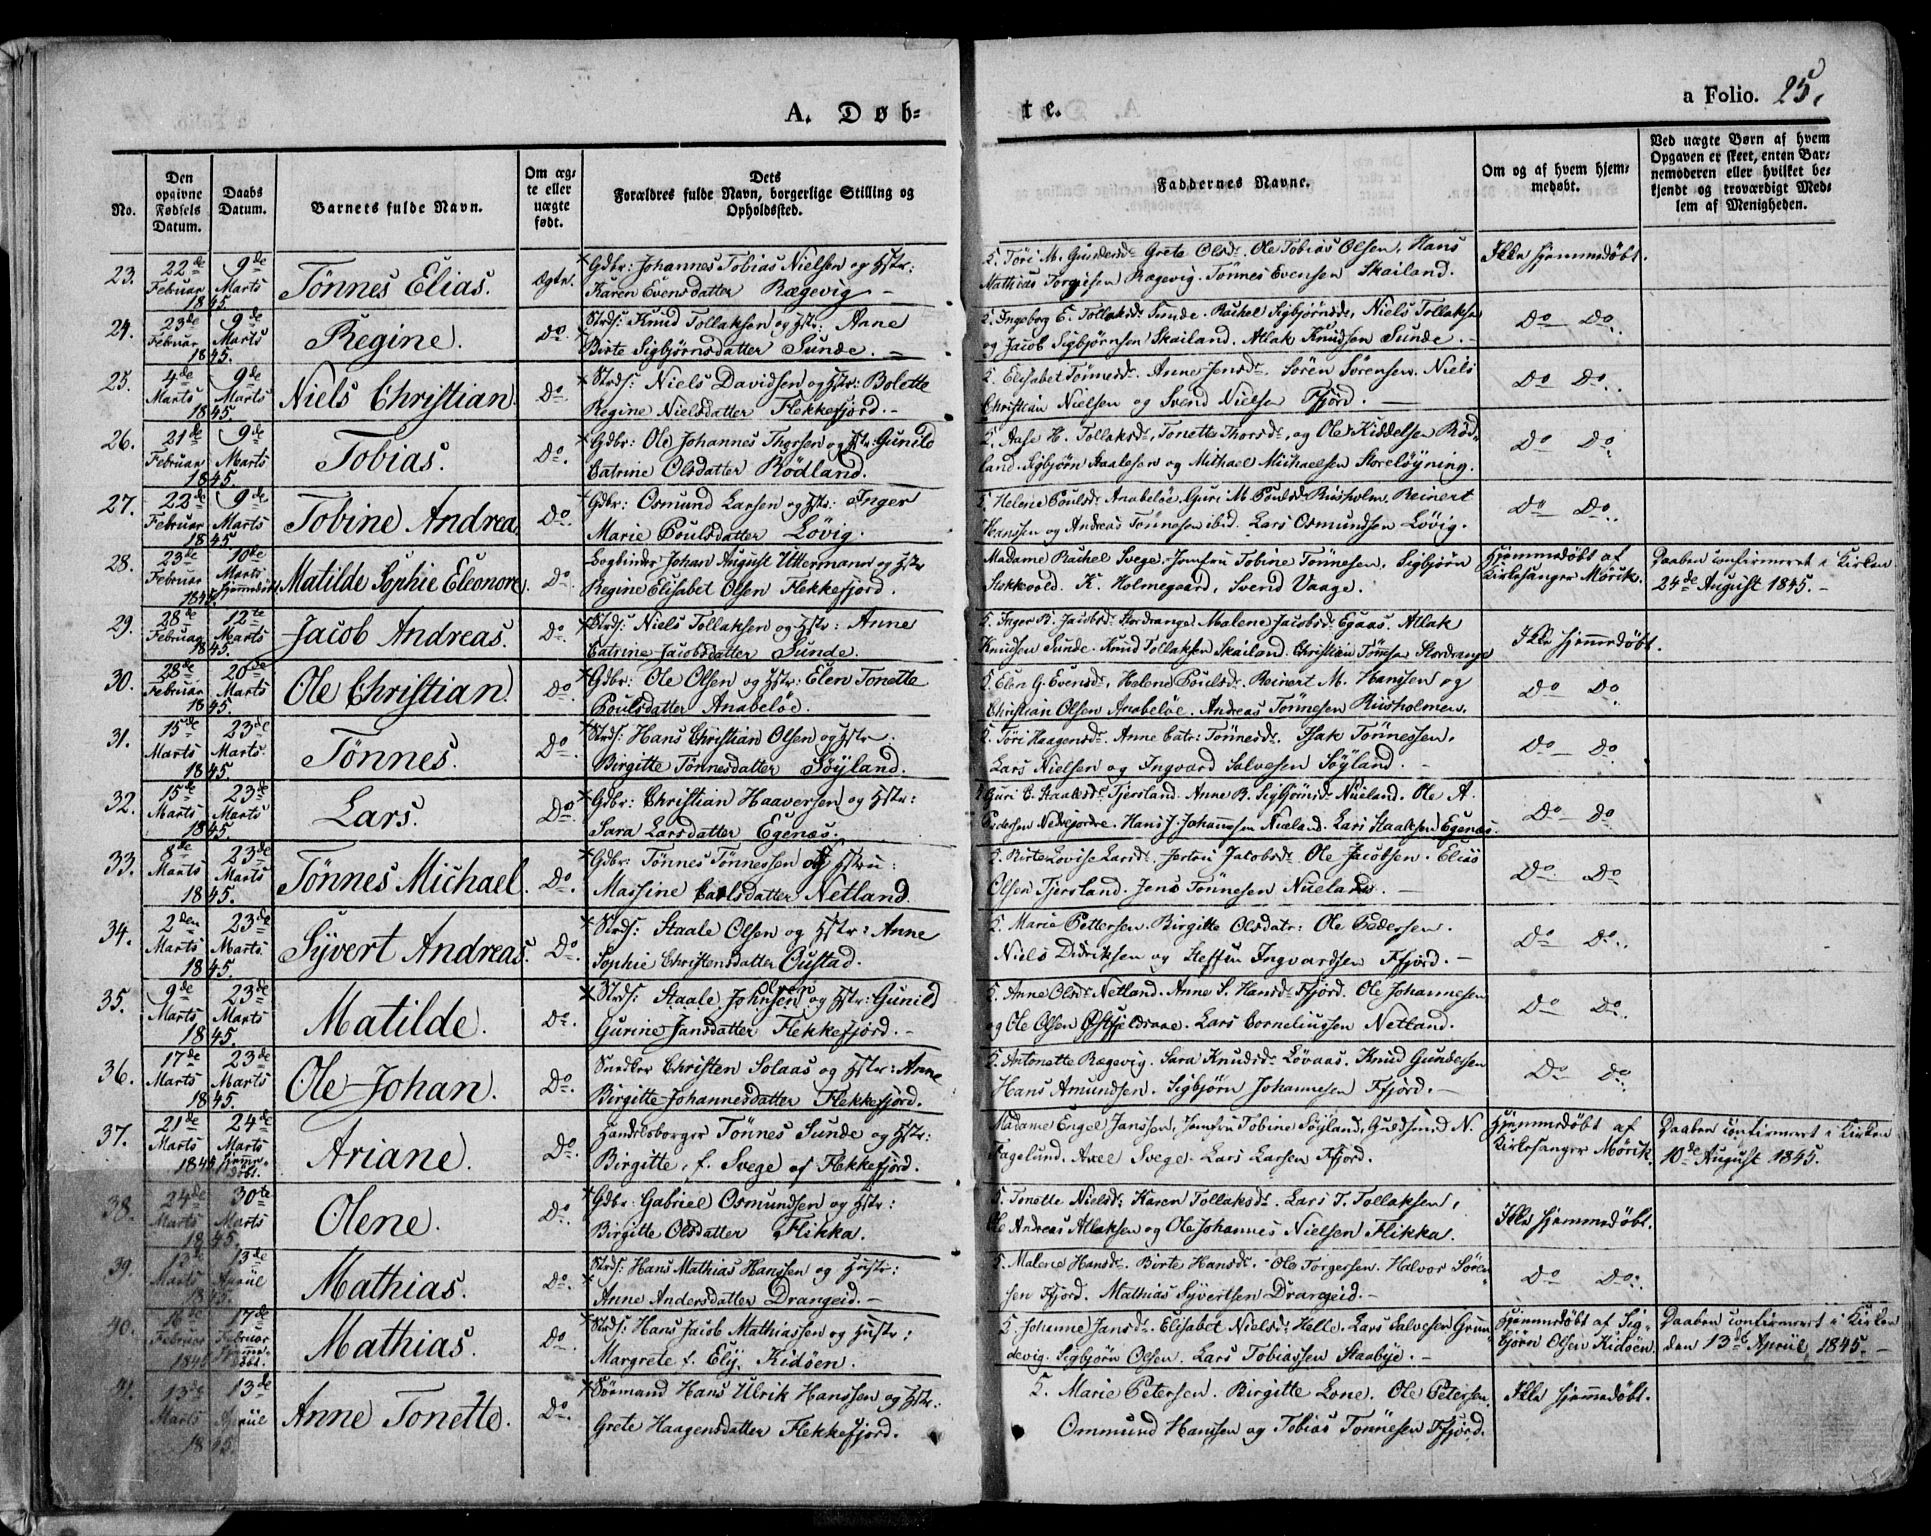 A. Døb=
te.
a Folio. 25.
No.
Den opgivne Fødsels Datum.
Daabs Datum.
Barnets fulde Navn.
Om ægte eller uægte født.
Dets Forældres fulde Navn, borgerlige Stilling og Opholdssted.
Faddernes Navne.
Om og af hvem hjemmedøbt.
Ved uægte Børn af hvem Opgaven er skeet, enten Barnemoderen eller hvilket bekjendt og troværdigt Medlem af Menigheden.
23. 22de Februar 1845. 9de Marts Tønnes Elias. Ægte. Gdbr: Johannes Tobias Nielsen og Hstr: Karen Evensdatter Rægevig
K. Töri M. Gundersdr. Grete Olsdr. Ole Tobias Olsen. Hans
Mathias Torgiesen Rægevig. Tönnes Evensen Skailand. Ikke hjemmedøbt.
24. 23de Februar 1845. 9de Marts Regine. Do. Strds: Knud Tollaksen og Hstr: Anne Birte Sigbjørnsdatter Sunde.
K. Ingeborg E. Tollaksdr Sunde. Rachel Sigbjørnsdr, Niels Tollaksen
og Jacob Sigbjørnsen Skailand. Atlak Knudsen Sunde. Do Do.
25. 4de Marts 1845. 9de Marts Niels Christian. Do. Strds: Niels Davidsen og Hstr: Bolette Regine Nielsdatter Flekkefjord.
K. Elisabet Tönnesdr. Anne Jensdr. Sören Sörensen. Niels
Christian Nielsen og Svend Nielsen Ffjord. Do Do.
26. 21de Februar 1845. 9de Marts Tobias. Do. Gdbr: Ole Johannes Thorsen og Hstr: Gunild Catrine Olsdatter Rödland.
K. Aase H. Tollaksdr, Tonette Thorsdr, og Ole Kiddelsen Rød=
land. Sigbjørn Staalesen og Mikael Michaelsen Storeløyning. Do Do
27. 22de Februar 1845. 9de Marts Tobine Andrea Do. Gdbr: Osmund Larsen og Hstr: Inger Marie Poulsdatter Lövig.
K. Helene Poulsdr Anabeløe, Guri M. Poulsdr Riisholm, Reinert
Hanssen og Andreas Tönnesen ibid. Lars Osmundsen Lövig. Do Do.
28. 23de Februar 1845. 10de Marts hjemmedøbt. Matilde Sophie Eleonore. Do. Bogbinder Johan August Uttermann og Hstr Regine Elisabet Olsen Flekkefjord.
Madame Rachel Svege. Jomfru Tobine Tönnesen, Sigbjörn
Stokkvold. K. Holmegaard, Svend Vaage. Hjemmedøbt af Kirkesanger Mörik. Daaben confirmeret i Kirken 24de August 1845.
29. 28de Februar 1845. 12te Marts Jacob Andreas. Do. Strds: Niels Tollaksen og Hstr: Anne Catrine Jacobsdatter Sunde.
K. Inger B. Jacobsdr Stordrange, Malene Jacobsdr Egaas. Atlak
Knudsen Sunde. Knud Tollaksen Skailand. Christian Tönnesen Stordrange Ikke hjemmedøbt.
30. 28de Februar 1845. 20de Marts Ole Christian. Do. Gdbr: Ole Olsen og Hstr: Elen Tonette Poulsdatter Anabeløe.
K. Elen G. Evensdr, Helene Poulsdr. Reinert M. Hanssen og
Christian Olsen Anabeløe. Andreas Tönnesen Riisholmen. Do Do
31. 15de Marts 1845. 23de Marts. Tönnes. Do. Strds: Hans Christian Olsen og Hstr. Birgitte Tönnesdatter Söyland.
K. Töri Haagensdr. Anne Catr: Tönnesdr. Isak Tönnessen,
Lars Nielsen og Ingvard Salvesen Söyland. Do Do
32. 15de Marts 1845. 23de Marts Lars. Do. Gdbr: Christian Haaversen og Hstr: Sara Larsdatter Egenæs.
Guri E. Staalesdr Tjersland. Anne B. Sigbjörnsdr Nueland. Ole A.
Pedersen Nedrefjordre. Hans J. Johannsen Nueland. Lars Staalesen Egenæs. Do Do
33. 8de Marts 1845. 23de Marts Tönnes Michael. Do. Gdbr: Tönnes Tönnessen og Hstru: Massine Carlsdatter Netland.
K. Birte Lovise Larsdr. Jertru Jacobsdr. Ole Jacobsen. Elias
Olsen Tjersland. Jens Tönnesen Nueland. Do Do
34. 2den Marts 1845. 23de Marts. Syvert Andreas. Do. Strds: Staale Olsen og Hstr: Anne Sophie Christensdatter Oustad.
K. Marie Pettersen. Birgitte Olsdatr: Ole Pedersen.
Niels Didriksen og Steffen Ingvardsen Ffjord. Do Do.
35. 9de Marts 1845. 23de Marts Matilde. Do. Strds: Staale Johnsen og Hstr: Gunild Gurine Jansdatter Flekkefjord.
K. Anne Olsdr Netland. Anne S. Hansdr Ffjord. Ole Johannesen
og Ole Olsen Østfjeldraae. Lars Corneliussen Netland. Do Do.
36. 17de Marts 1845. 23de Marts Ole Johan. Do. Christen Solaas og Hstr: Anne Birgitte Johannesdatter Flekkefjord.
K. Antonette Rægevig. Sara Knudsdr Lövaas. Knud Gundersen
Hans Amundsen. Sigbjørn Johannesen Ffjord. Do Do.
37. 21de Marts 1845 24de Marts hjemmedøbt. Ariane. Do. Handelsborger Tönnes Sunde og Hstr: Birgitte, f. Svege af Flekkefjord.
Madame Engel Janssen, Jomfru Tobine Söyland, Gudsmund N.
Fagelund. Axel Svege. Lars Larsen Ffjord. Hjemmedøbt af Kirkesanger Mörik. Daaben confirmeret i Kirken 10de August 1845.
38. 24de Marts 1845. 30te Marts Olene. Do. Gdbr: Gabriel Osmundsen og Hstr: Birgitte Olsdatter Flikka.
K. Tonette Nielsdr. Karen Tollaksdr. Lars T. Tollaksen,
Ole Andreas Atlaksen og Ole Johannes Nielsen Flikka. Ikke hjemmedøbt.
39. 13de Marts 1845. 13de April Mathias. Do. Strds: Hans Mathias Hanssen og Hustr: Anne Andersdatter Drangeid.
K. Malene Hansdr. Birte Hansdr. Ole Torgersen. Halvor Sören=
sen Ffjord. Mathias Syvertsen Drangeid. Do Do.
40. 16de Februar 1845 17de Februar hjemmedøbt. Mathias. Do Strds: Hans Jacob Mathiassen og Hustr: Margrete f. Elj. Kidöen.
K. Johanne Jansdr. Elisabet Nielsdr Helle. Lars Salvesen Grun=
devig. Sigbjørn Olsen. Lars Tobiassen Staabye. Hjemmedøbt af Sigbjörn Olsen Kidöen. Daaben confirmeret i Kirken den 13de April 1845.
41. 13de Marts 1845 13de April Anne Tonette. Do. Sømand Hans Ulrik Hanssen og Hstr: Grete Haagensdatter Flekkefjord.
K. Marie Petersen. Birgitte Lone. Ole Petersen.
Ommund Hanssen og Tobias Tönnesen Ffjord. Ikke hjemmedøbt.